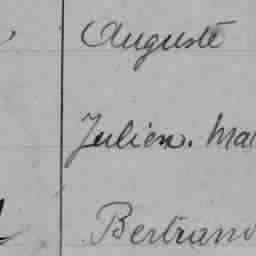 Auguste
Julien. Mar
Bertrand